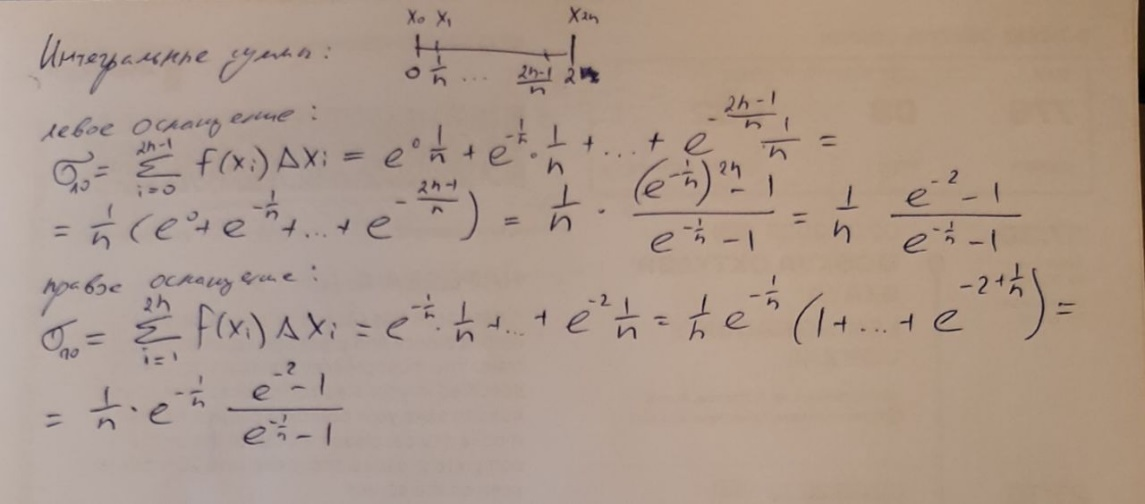 x₀ x₁ x₂ₙ
Интегральные суммы:
0 1/n ... (2n-1)/n 2
левое оснащение:
σ_ло = ∑_{i=0}^{2n-1} f(xᵢ) Δxᵢ = e⁰ 1/n + e^{-1/n} · 1/n + ... + e^{-(2n-1)/n} 1/n =
= 1/n (e⁰ + e^{-1/n} + ... + e^{-(2n-1)/n}) = 1/n · ((e^{-1/n})^{2n} - 1)/(e^{-1/n} - 1) = 1/n (e^{-2} - 1)/(e^{-1/n} - 1)
правое оснащение:
σ_по = ∑_{i=1}^{2n} f(xᵢ) Δxᵢ = e^{-1/n} · 1/n + ... + e^{-2} 1/n = 1/n e^{-1/n} (1 + ... + e^{-2+1/n}) =
= 1/n · e^{-1/n} (e^{-2} - 1)/(e^{-1/n} - 1)